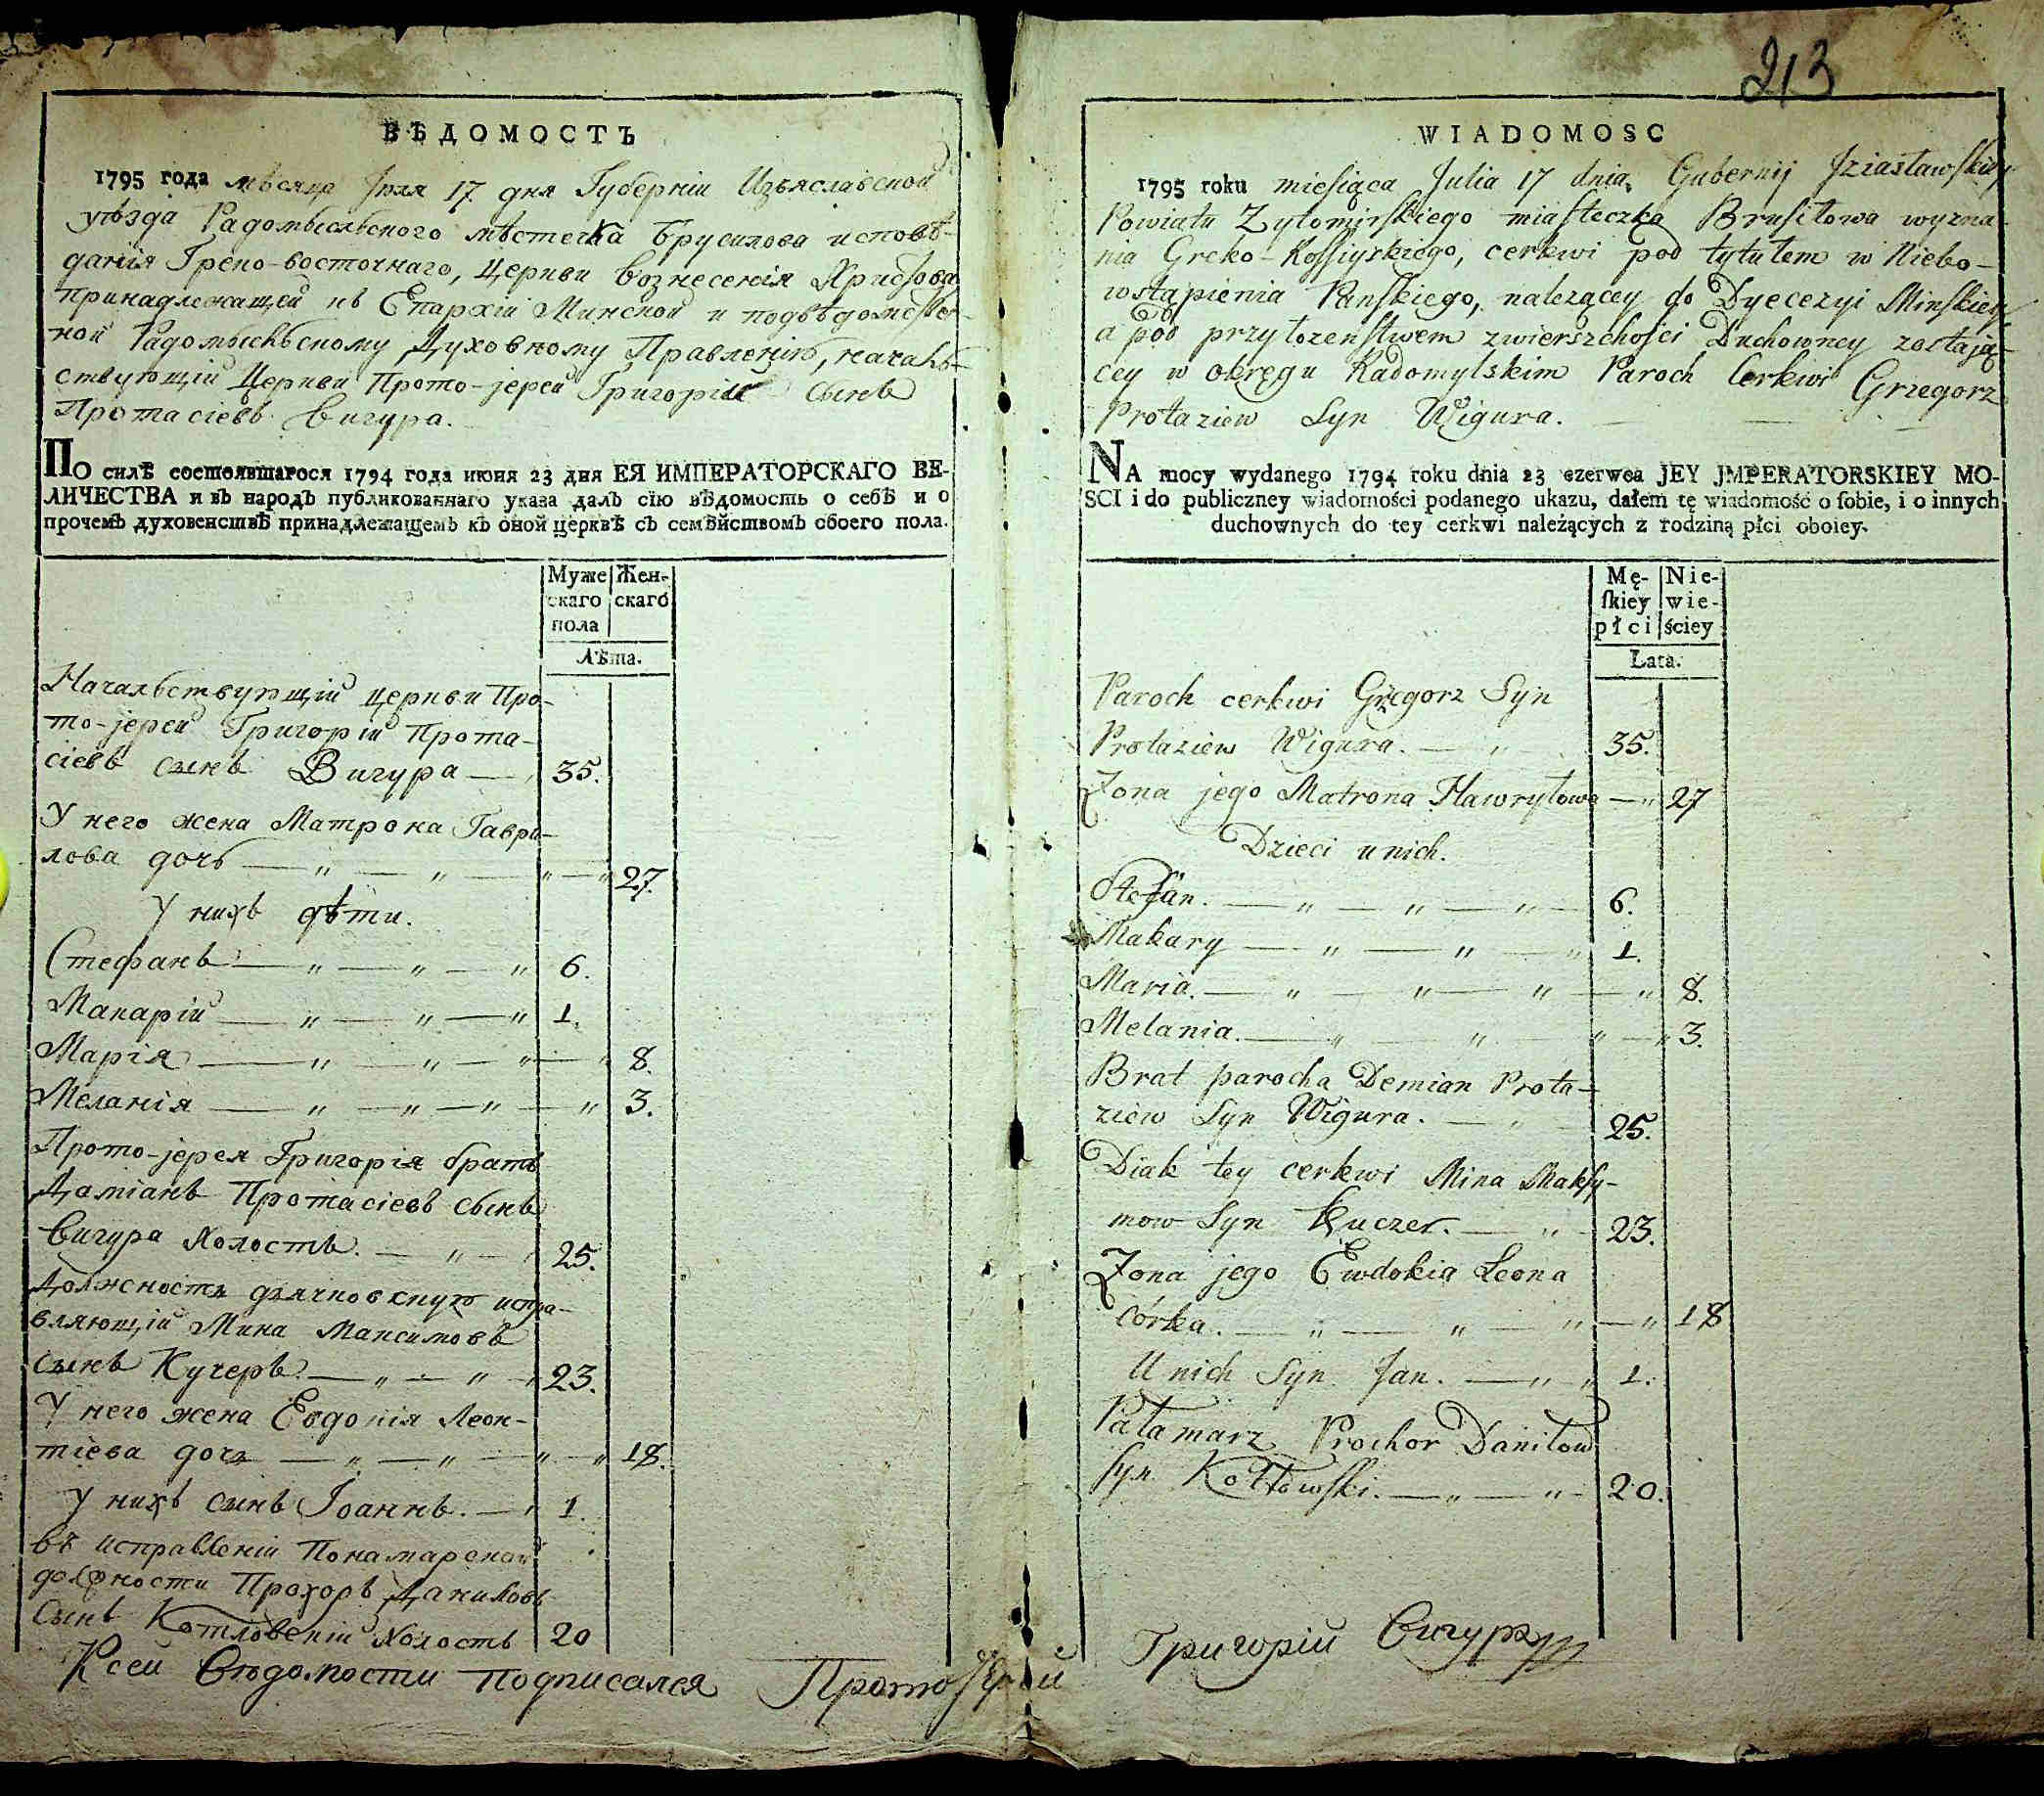 213
ВѢДОМОСТЪ
1795 года мѣсяца Іюля 17 дня Губерніи Изъяславской
уѣзда Радомысльского мѣстечка Брусилова исповѣ-
данія Греко-восточнаго, Церкви Вознесенія Христова
принадлежащей къ Епархіи Минской и подвѣдомстве-
ной Радомысльскому Духовному Правленію, началь-
ствующій Церкви Прото-јерей Григорій Сынъ
Протасіевъ Вигура.
ПО силѣ состоявшагося 1794 года июня 23 дня ЕЯ ИМПЕРАТОРСКАГО ВЕ-
ЛИЧЕСТВА и въ народъ публикованнаго указа далъ сію вѣдомость о себѣ и о
прочемъ духовенствѣ принадлежащемъ къ оной церквѣ съ семѣйствомъ обоего пола.
Муже Жен-
скаго скаго
пола
Лѣта.
Начальствующій церкви Про-
то-јерей Григорій Прота-
сіевъ сынъ Вигура — 35.
У него жена Матрона Гаври-
лова дочь — „ — „ — „ — „ 27.
У нихъ дѣти.
Стефанъ — „ — „ — „ 6.
Макарій — „ — „ — „ 1.
Марія — „ — „ — „ — „ 8.
Меланія — „ — „ — „ — „ 3.
Прото-јерея Григорія братъ
Даміанъ Протасіевъ сынъ
Вигура Холостъ. — „ — 25.
Должность дьячковскую испра-
вляющій Мина Максимовъ
сынъ Кучеръ. — „ — „ — „ 23.
У него жена Евдокія Леон-
тіева дочь — „ — „ — „ — „ 18.
У нихъ сынъ Іоаннъ. — „ 1.
въ исправленіи Понамарской
должности Прохоръ Даниловъ
Сынъ Котловскій Холостъ 20
WIADOMOSC
1795 roku miesiąca Julia 17 dnia, Gubernij Jziasławskiey
Powiatu Żytomirskiego miasteczka Brusiłowa wyzna-
nia Greko-Rossiyskiego, cerkwi pod tytułem w Niebo-
wstąpienia Pańskiego, należącey do Dyecezyi Minskiey
a pod przyłożenstwem zwierszchości Duchowney zostają-
cey w okręgu Radomylskim Paroch Cerkwi Grzegorz
Protaziew Syn Wigura.
NA mocy wydanego 1794 roku dnia 23 czerwca JEY JMPERATORSKIEY MO-
SCI i do publiczney wiadomości podanego ukazu, dałem tę wiadomość o sobie, i o innych
duchownych do tey cerkwi należących z rodziną płci oboiey.
Mę- Nie-
skiey wie-
płci ściey
Lata.
Paroch cerkwi Grzegorz Syn
Protaziew Wigura. — „ 35.
Żona jego Matrona Hawryłowa — „ 27
Dzieci u nich.
Stefan. — „ — „ — „ — 6.
Makary — „ — „ — „ 1.
Maria. — „ — „ — „ — „ 8.
Melania. — „ — „ — „ — „ 3.
Brat parocha Demian Prota-
ziew Syn Wigura. — „ — 25.
Diak tey cerkwi Mina Maksy-
mow Syn Kuczer. — „ — 23.
Żona jego Ewdokia Leona
córka. — „ — „ — „ — „ 18
U nich Syn Jan. — „ „ 1.
Pałamarz Prochor Daniłow
Syn Kotłowski. — „ — „ — 20.
К сей Вѣдомости подписался Прото јерей Григорій Вигура